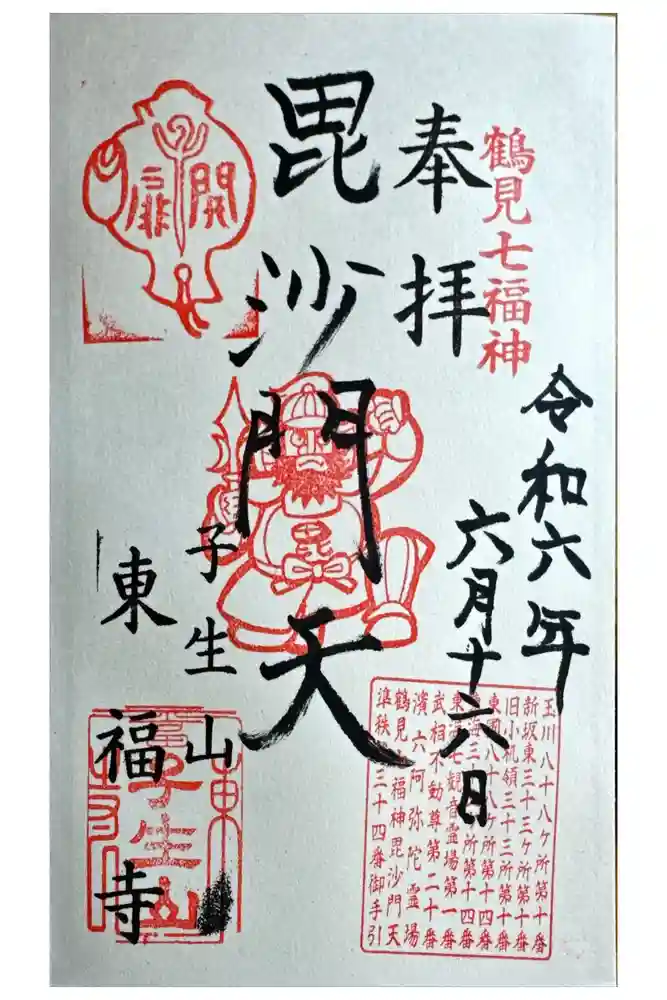 鶴見七福神
奉拝
令和六年
六月十六日
毘沙門天
子生山
東福寺
開扉
毘
玉川八十八ケ所第十番
新坂東三十三ケ所第十番
旧小机領三十三所第十番
東國八十八ケ所第十四番
海三十 所第十四番
東海七観音霊場第一番
武相不動尊第二十番
濱六阿弥陀霊場
鶴見七福神毘沙門天
準秩 三十四番御手引
子生山